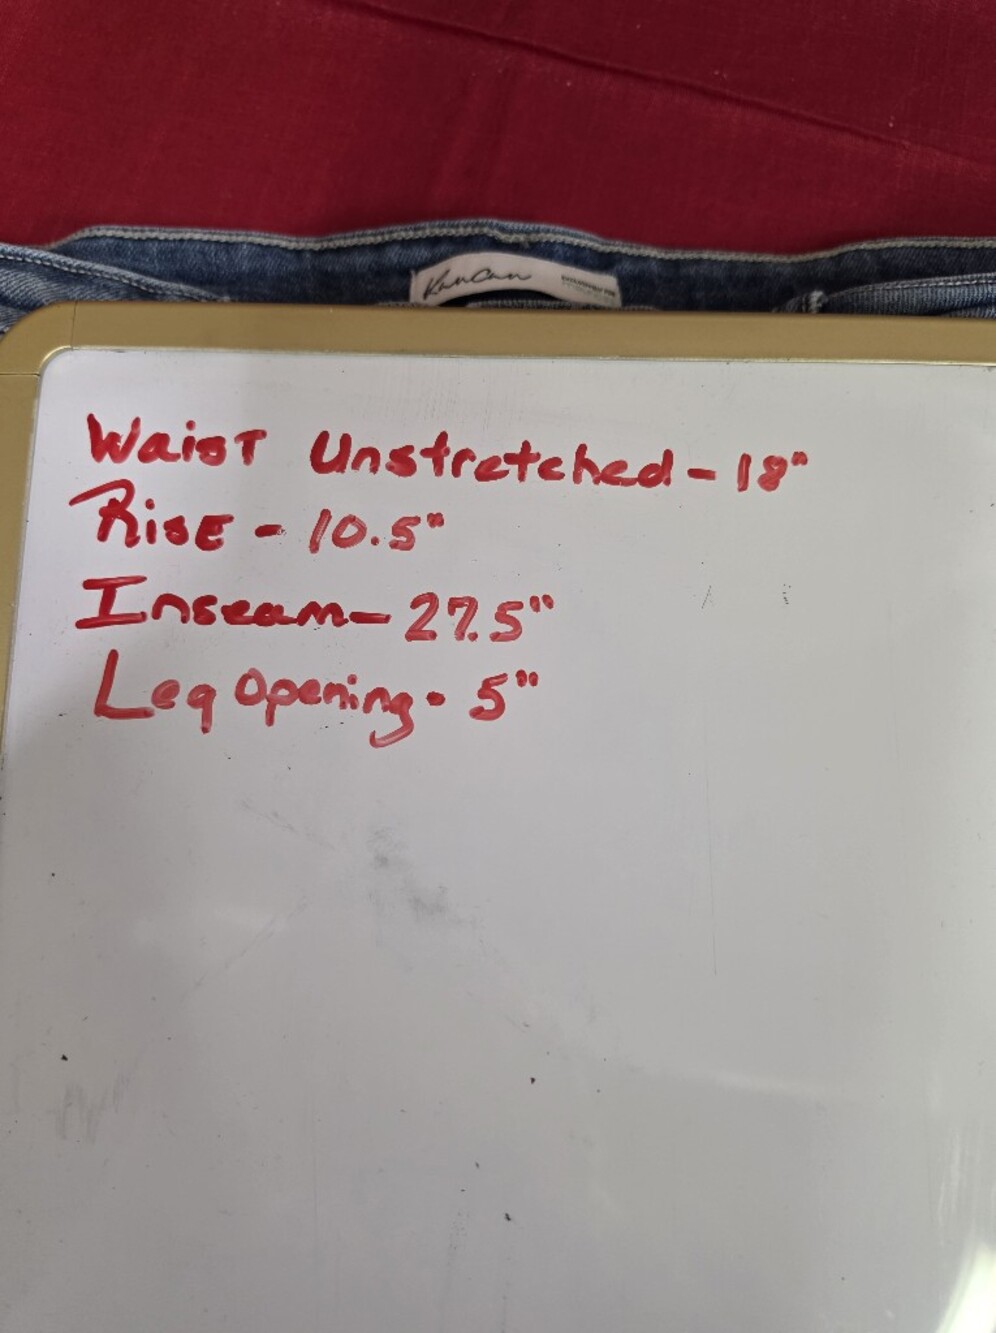 KanCan
Waist Unstretched - 18"
Rise - 10.5"
Inseam - 27.5"
Leg Opening - 5"